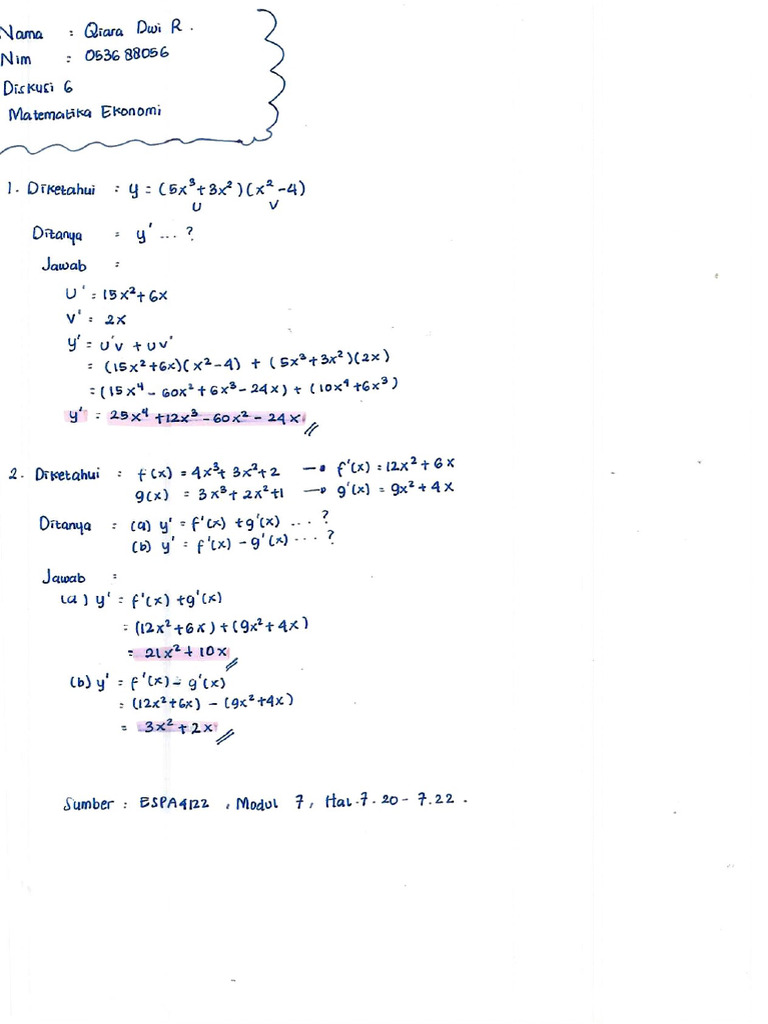 Nama : Qiara Dwi R.
Nim : 053688056
Diskusi 6
Matematika Ekonomi
1. Diketahui : y = (5x³+3x²)(x²-4)
U V
Ditanya = y' ... ?
Jawab :
U' = 15x²+6x
V' = 2x
y' = U'V + UV'
= (15x²+6x)(x²-4) + (5x³+3x²)(2x)
= (15x⁴ - 60x² + 6x³ - 24x) + (10x⁴+6x³)
y' = 25x⁴ + 12x³ - 60x² - 24x //
2. Diketahui : f(x) = 4x³+ 3x²+2 → f'(x) = 12x² + 6x
g(x) = 3x³+ 2x²+1 → g'(x) = 9x² + 4x
Ditanya : (a) y' = f'(x) + g'(x) ... ?
(b) y' = f'(x) - g'(x) ... ?
Jawab :
(a) y' = f'(x) + g'(x)
= (12x²+6x) + (9x²+4x)
= 21x² + 10x //
(b) y' = f'(x) - g'(x)
= (12x²+6x) - (9x²+4x)
= 3x² + 2x //
Sumber : ESPA4122 , Modul 7, Hal.7.20 - 7.22 .